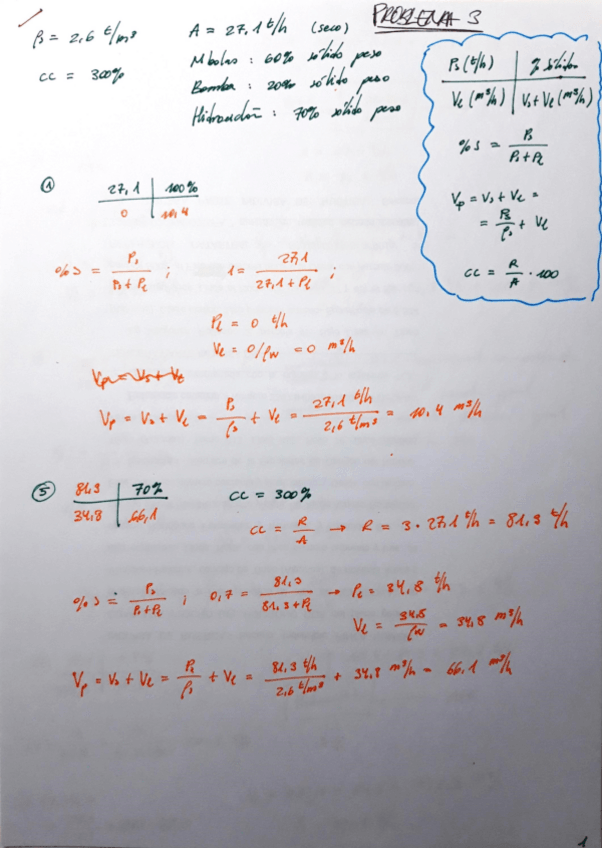 PROBLEMA 3
ρs = 2,6 t/m³
A = 27,1 t/h (seco)
CC = 300%
M bolas : 60% sólido peso
Bomba : 20% sólido peso
Hidrociclón : 70% sólido peso
Ps (t/h) | % sólidos
Vl (m³/h) | Vs+Vl (m³/h)
% s = Ps / (Ps + Pl)
Vp = Vs + Vl =
= Ps/ρs + Vl
CC = R/A · 100
① 27,1 | 100%
0 | 10,4
% s = Ps / (Ps + Pl) ; 1 = 27,1 / (27,1 + Pl) ;
Pl = 0 t/h
Vl = 0/ρw = 0 m³/h
Vp = Vs + Vl
Vp = Vs + Vl = Ps/ρs + Vl = 27,1 t/h / 2,6 t/m³ = 10,4 m³/h
⑤ 81,3 | 70%
34,8 | 66,1
CC = 300%
CC = R/A → R = 3 · 27,1 t/h = 81,3 t/h
% s = Ps / (Ps + Pl) ; 0,7 = 81,3 / (81,3 + Pl) → Pl = 34,8 t/h
Vl = 34,8/ρw = 34,8 m³/h
Vp = Vs + Vl = Ps/ρs + Vl = 81,3 t/h / 2,6 t/m³ + 34,8 m³/h = 66,1 m³/h
1